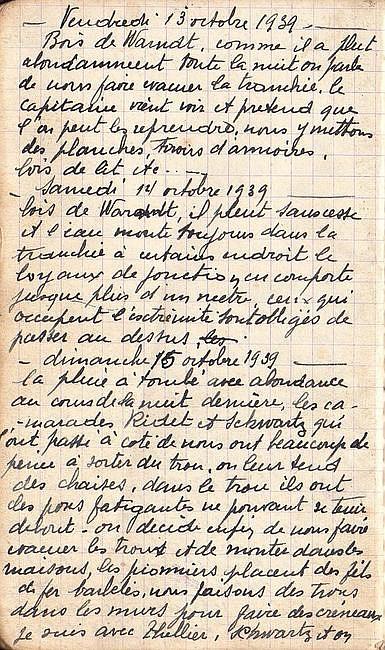 - Vendredi 13 octobre 1939 -
Bois de Warndt, comme il a plut
abondamment toute la nuit on parle
de nous faire évacuer la tranchée, le
capitaine vient voir et pretend que
l'on peut les reprendre, nous y mettons
des planches, tiroirs d'armoires,
bois de lit, etc...
- Samedi 14 octobre 1939
bois de Warandt, il pleut sans cesse
et l'eau monte toujours dans la
tranchée à certains endroit le
boyaux de jonction en comporte
jusque plus d'un metre, ceux qui
occupent l'extrémité sont obligés de
passer au dessus,
- dimanche 15 octobre 1939 -
la pluie à tombé avec abondance
au cours de la nuit dernière, les ca-
-marades Ridet et Schwartz qui
ont passé à coté de nous ont beaucoup de
peine à sortir du trou, on leur tend
des chaises, dans le trou ils ont
des poses fatigantes ne pouvant se tenir
debout - on decide enfin de nous faire
évacuer les trous et de monter dans les
maisons, les pionniers placent des fils
de fer barbelés, nous faisons des trous
dans les murs pour faire des créneaux
je suis avec Thellier, Schwartz et on